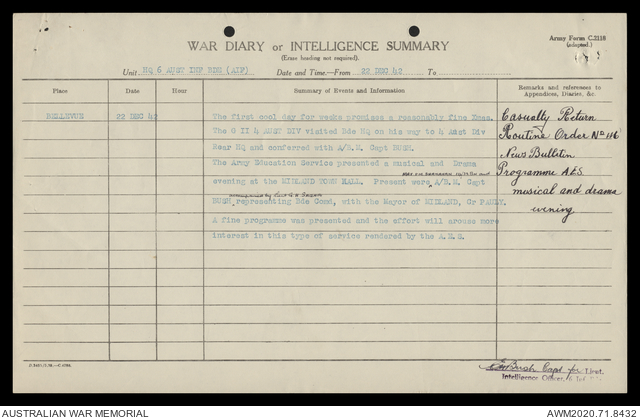 Army Form C.2118
(adapted.)
WAR DIARY or INTELLIGENCE SUMMARY
(Erase heading not required).
Unit HQ 6 AUST INF BDE (AIF) Date and Time—From 22 DEC 42 To
Place Date Hour Summary of Events and Information Remarks and references to Appendices, Diaries, &c.
BELLEVUE 22 DEC 42 The first cool day for weeks promises a reasonably fine Xmas. Casualty Return
The G II 4 AUST DIV visited Bde HQ on his way to 4 Aust Div Routine Order No 116
Rear HQ and conferred with A/B.M. Capt BUSH. News Bulletin
The Army Education Service presented a musical and Drama Programme A.E.S.
evening at the MIDLAND TOWN HALL. Present were A/B.M. Capt musical and drama
BUSH representing Bde Comd, with the Mayor of MIDLAND, Cr PAULY. evening
A fine programme was presented and the effort will arouse more
interest in this type of service rendered by the A.E.S.
Bush Capt for Lieut.
Intelligence Officer, 6
AUSTRALIAN WAR MEMORIAL AWM2020.71.8432